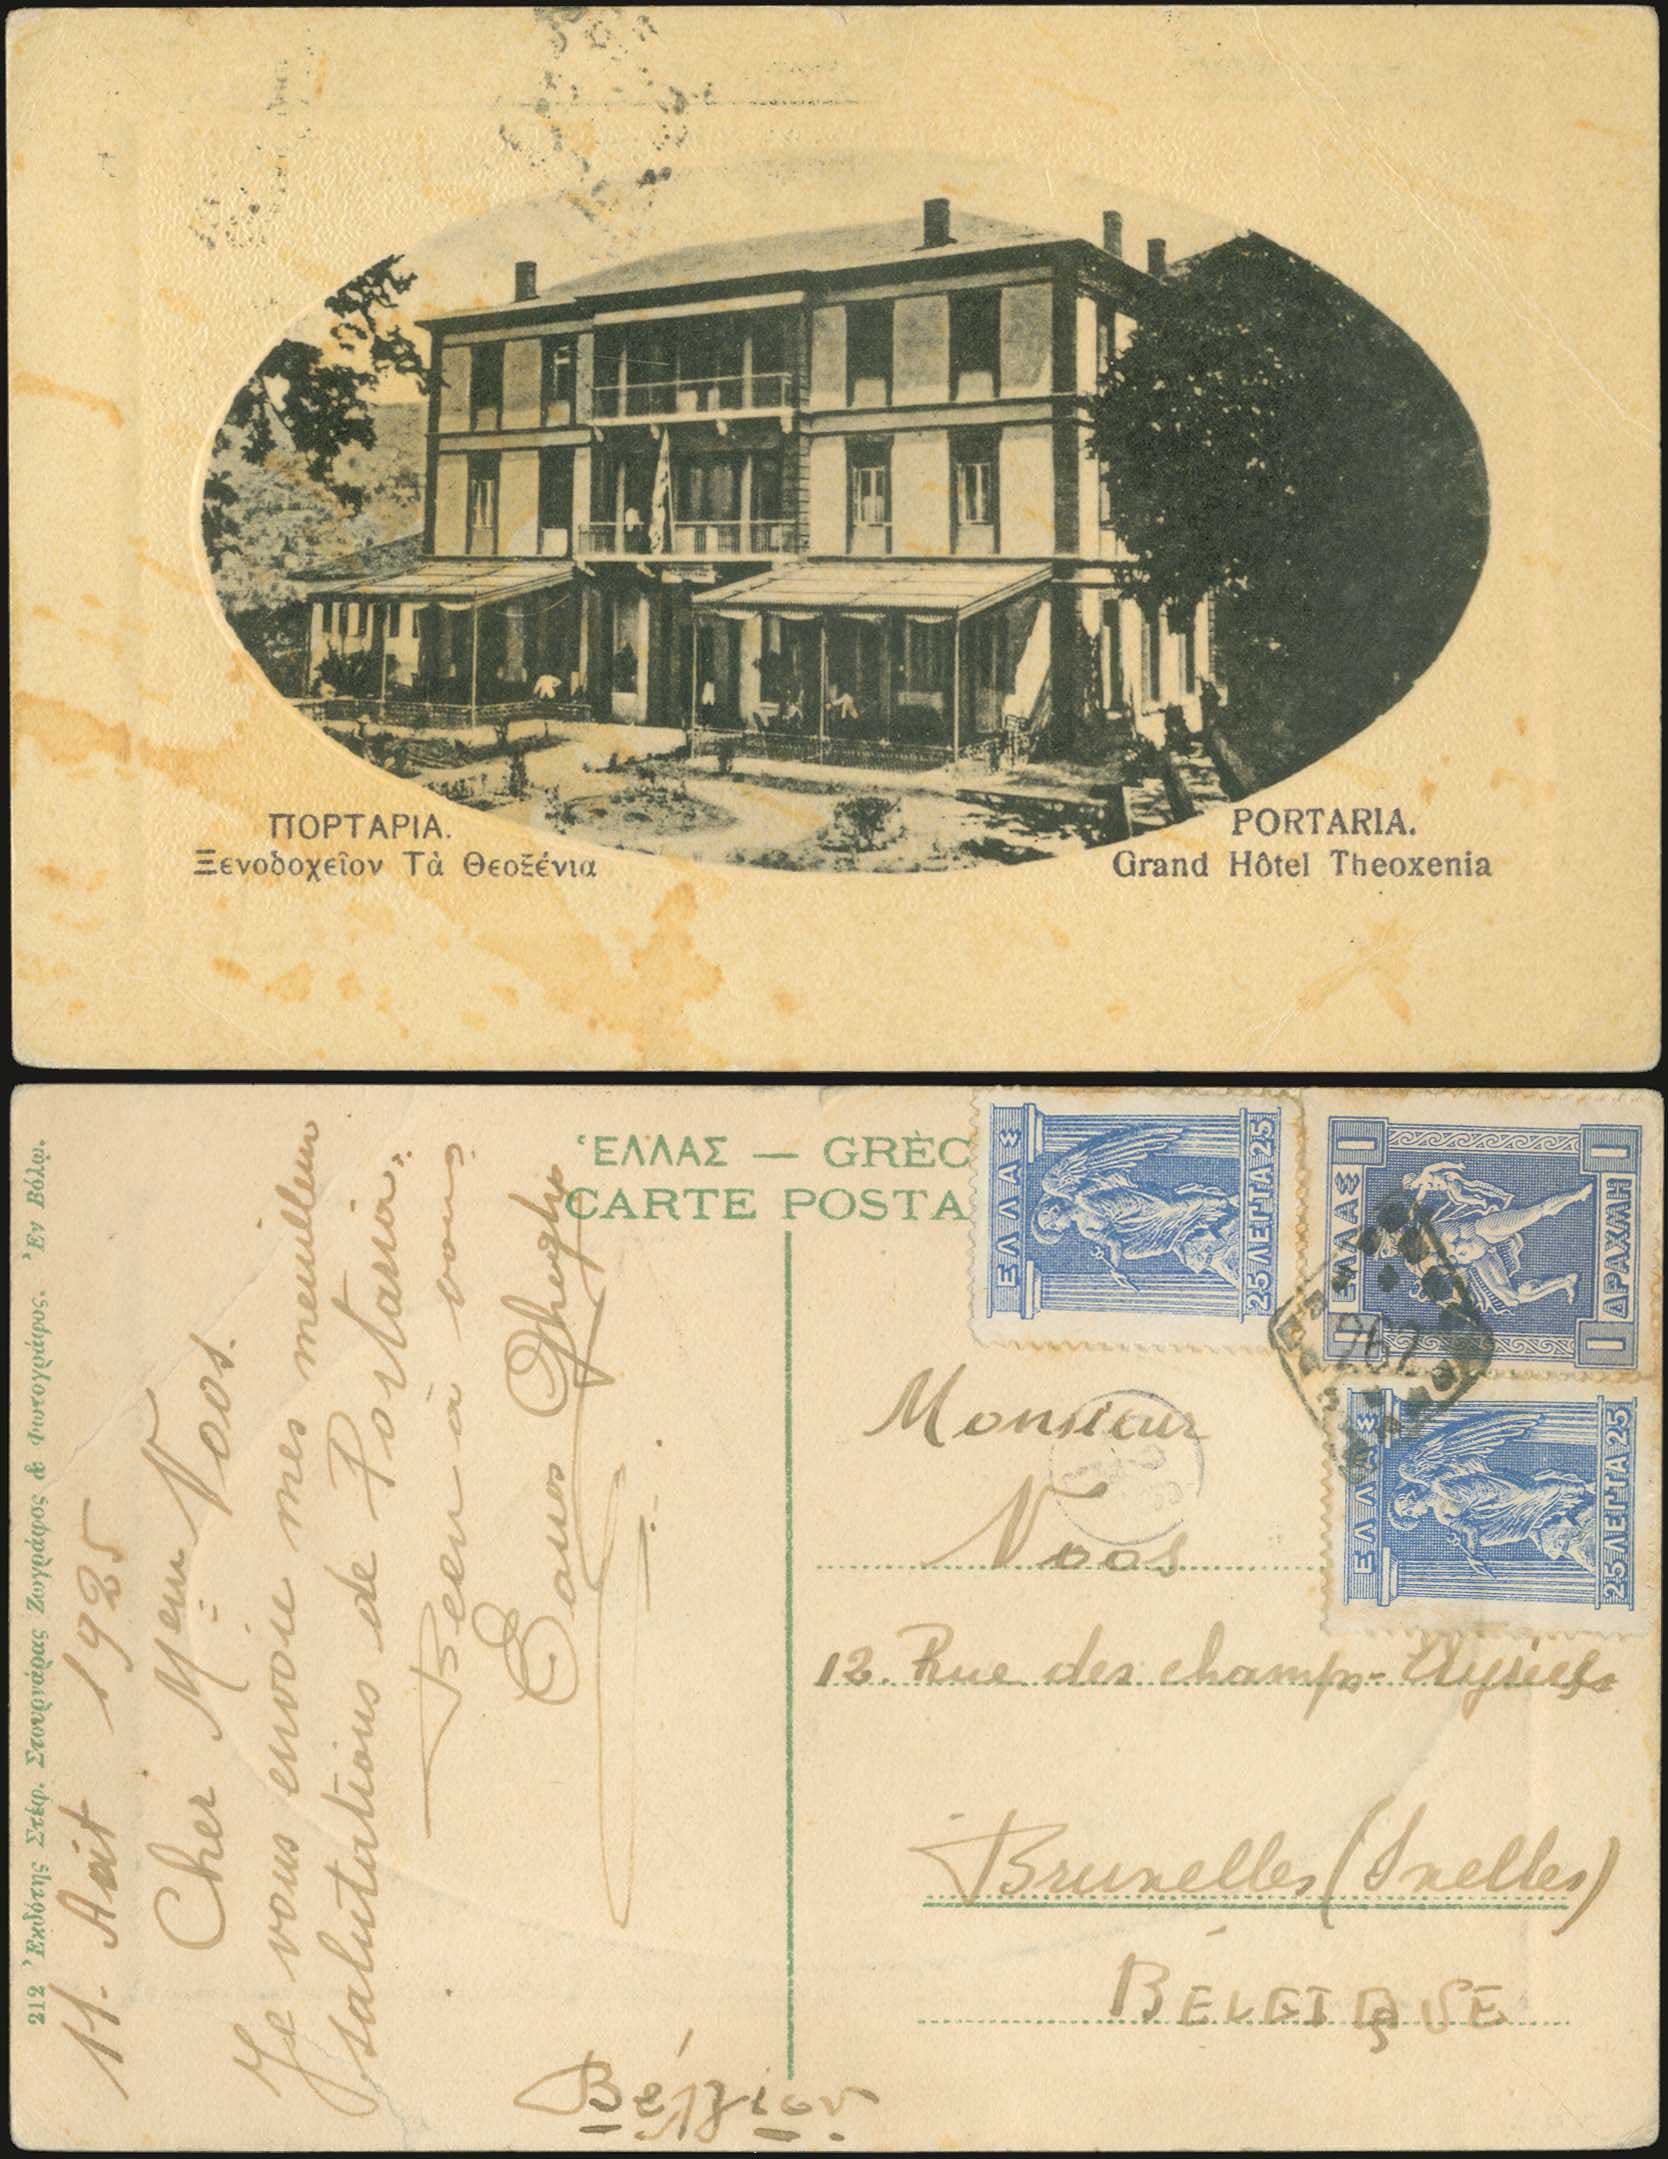 ΠΟΡΤΑΡΙΑ.
Ξενοδοχεῖον Τὰ Θεοξένια
PORTARIA.
Grand Hôtel Theoxenia
212 Ἐκδότης Στέφ. Στουρνάρας Ζωγράφος & Φωτογράφος. Ἐν Βόλῳ.
ἙΛΛΑΣ — GRÈC
CARTE POSTA
11. Aôut 1925
Cher Meur Voos.
Je vous envoie mes meilleurs
salutations de Portaria.
Been à vous
ΕΛΛΑΣ
25 ΛΕΠΤΑ 25
1 ΕΛΛΑΣ 1
1 ΔΡΑΧΜΗ 1
262
ΕΛΛΑΣ
25 ΛΕΠΤΑ 25
Monsieur
Voos
12. Rue des champs-Elysées
Bruxelles (Ixelles)
BÉLGIQUE
Βέλγιον